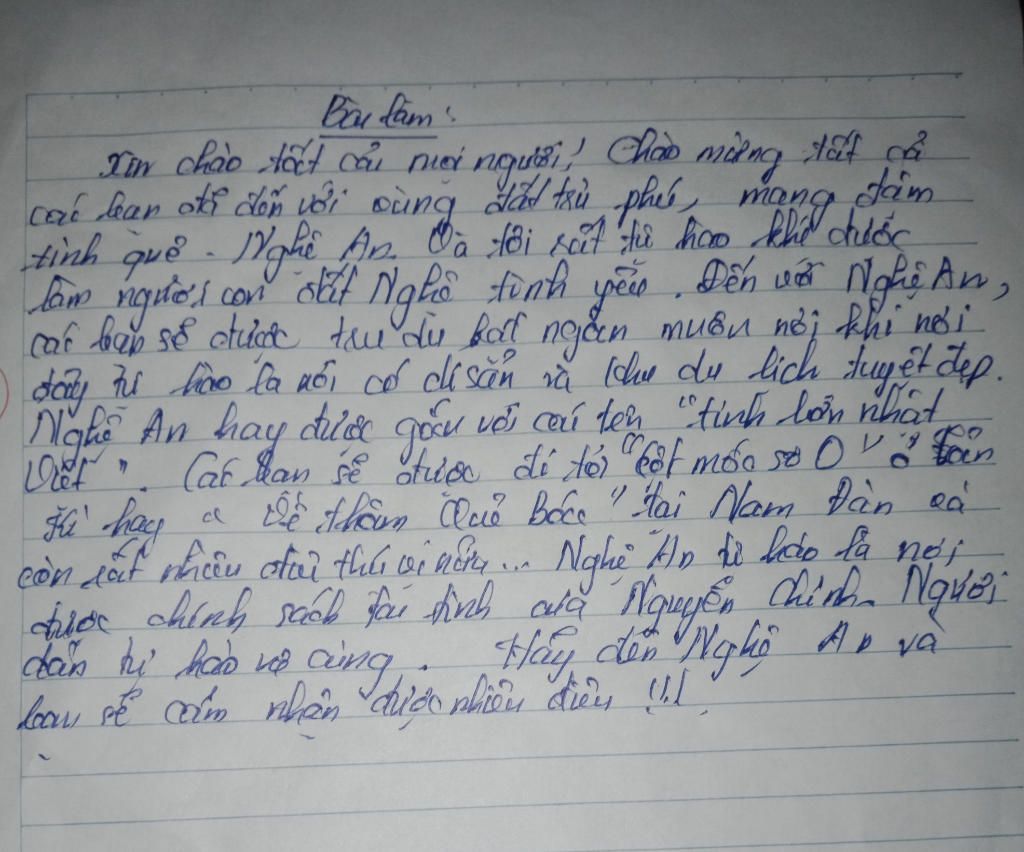 Bài làm:
Xin chào tất cả mọi người! Chào mừng tất cả
các bạn đã đến với vùng đất trù phú, mang đậm
tình quê - Nghệ An. Và tôi rất tự hào khi được
làm người con đất Nghệ tình yêu. Đến với Nghệ An,
các bạn sẽ được du ngàn muôn nơi khi nơi
đây tự hào là nơi có di sản và khu du lịch tuyệt đẹp.
Nghệ An hay được gắn với cái tên "tỉnh lớn nhất
Việt". Các bạn sẽ được đi tới "cột mốc số 0" ở Tân
Kì hay "Về thăm Quê Bác" tại Nam Đàn và
còn rất nhiều thú vị nữa... Nghệ An tự hào là nơi
được chính sách tài tình của Nguyễn Chính. Người
dân tự hào vô cùng. Hãy đến Nghệ An và
bạn sẽ cảm nhận được nhiều điều !!!